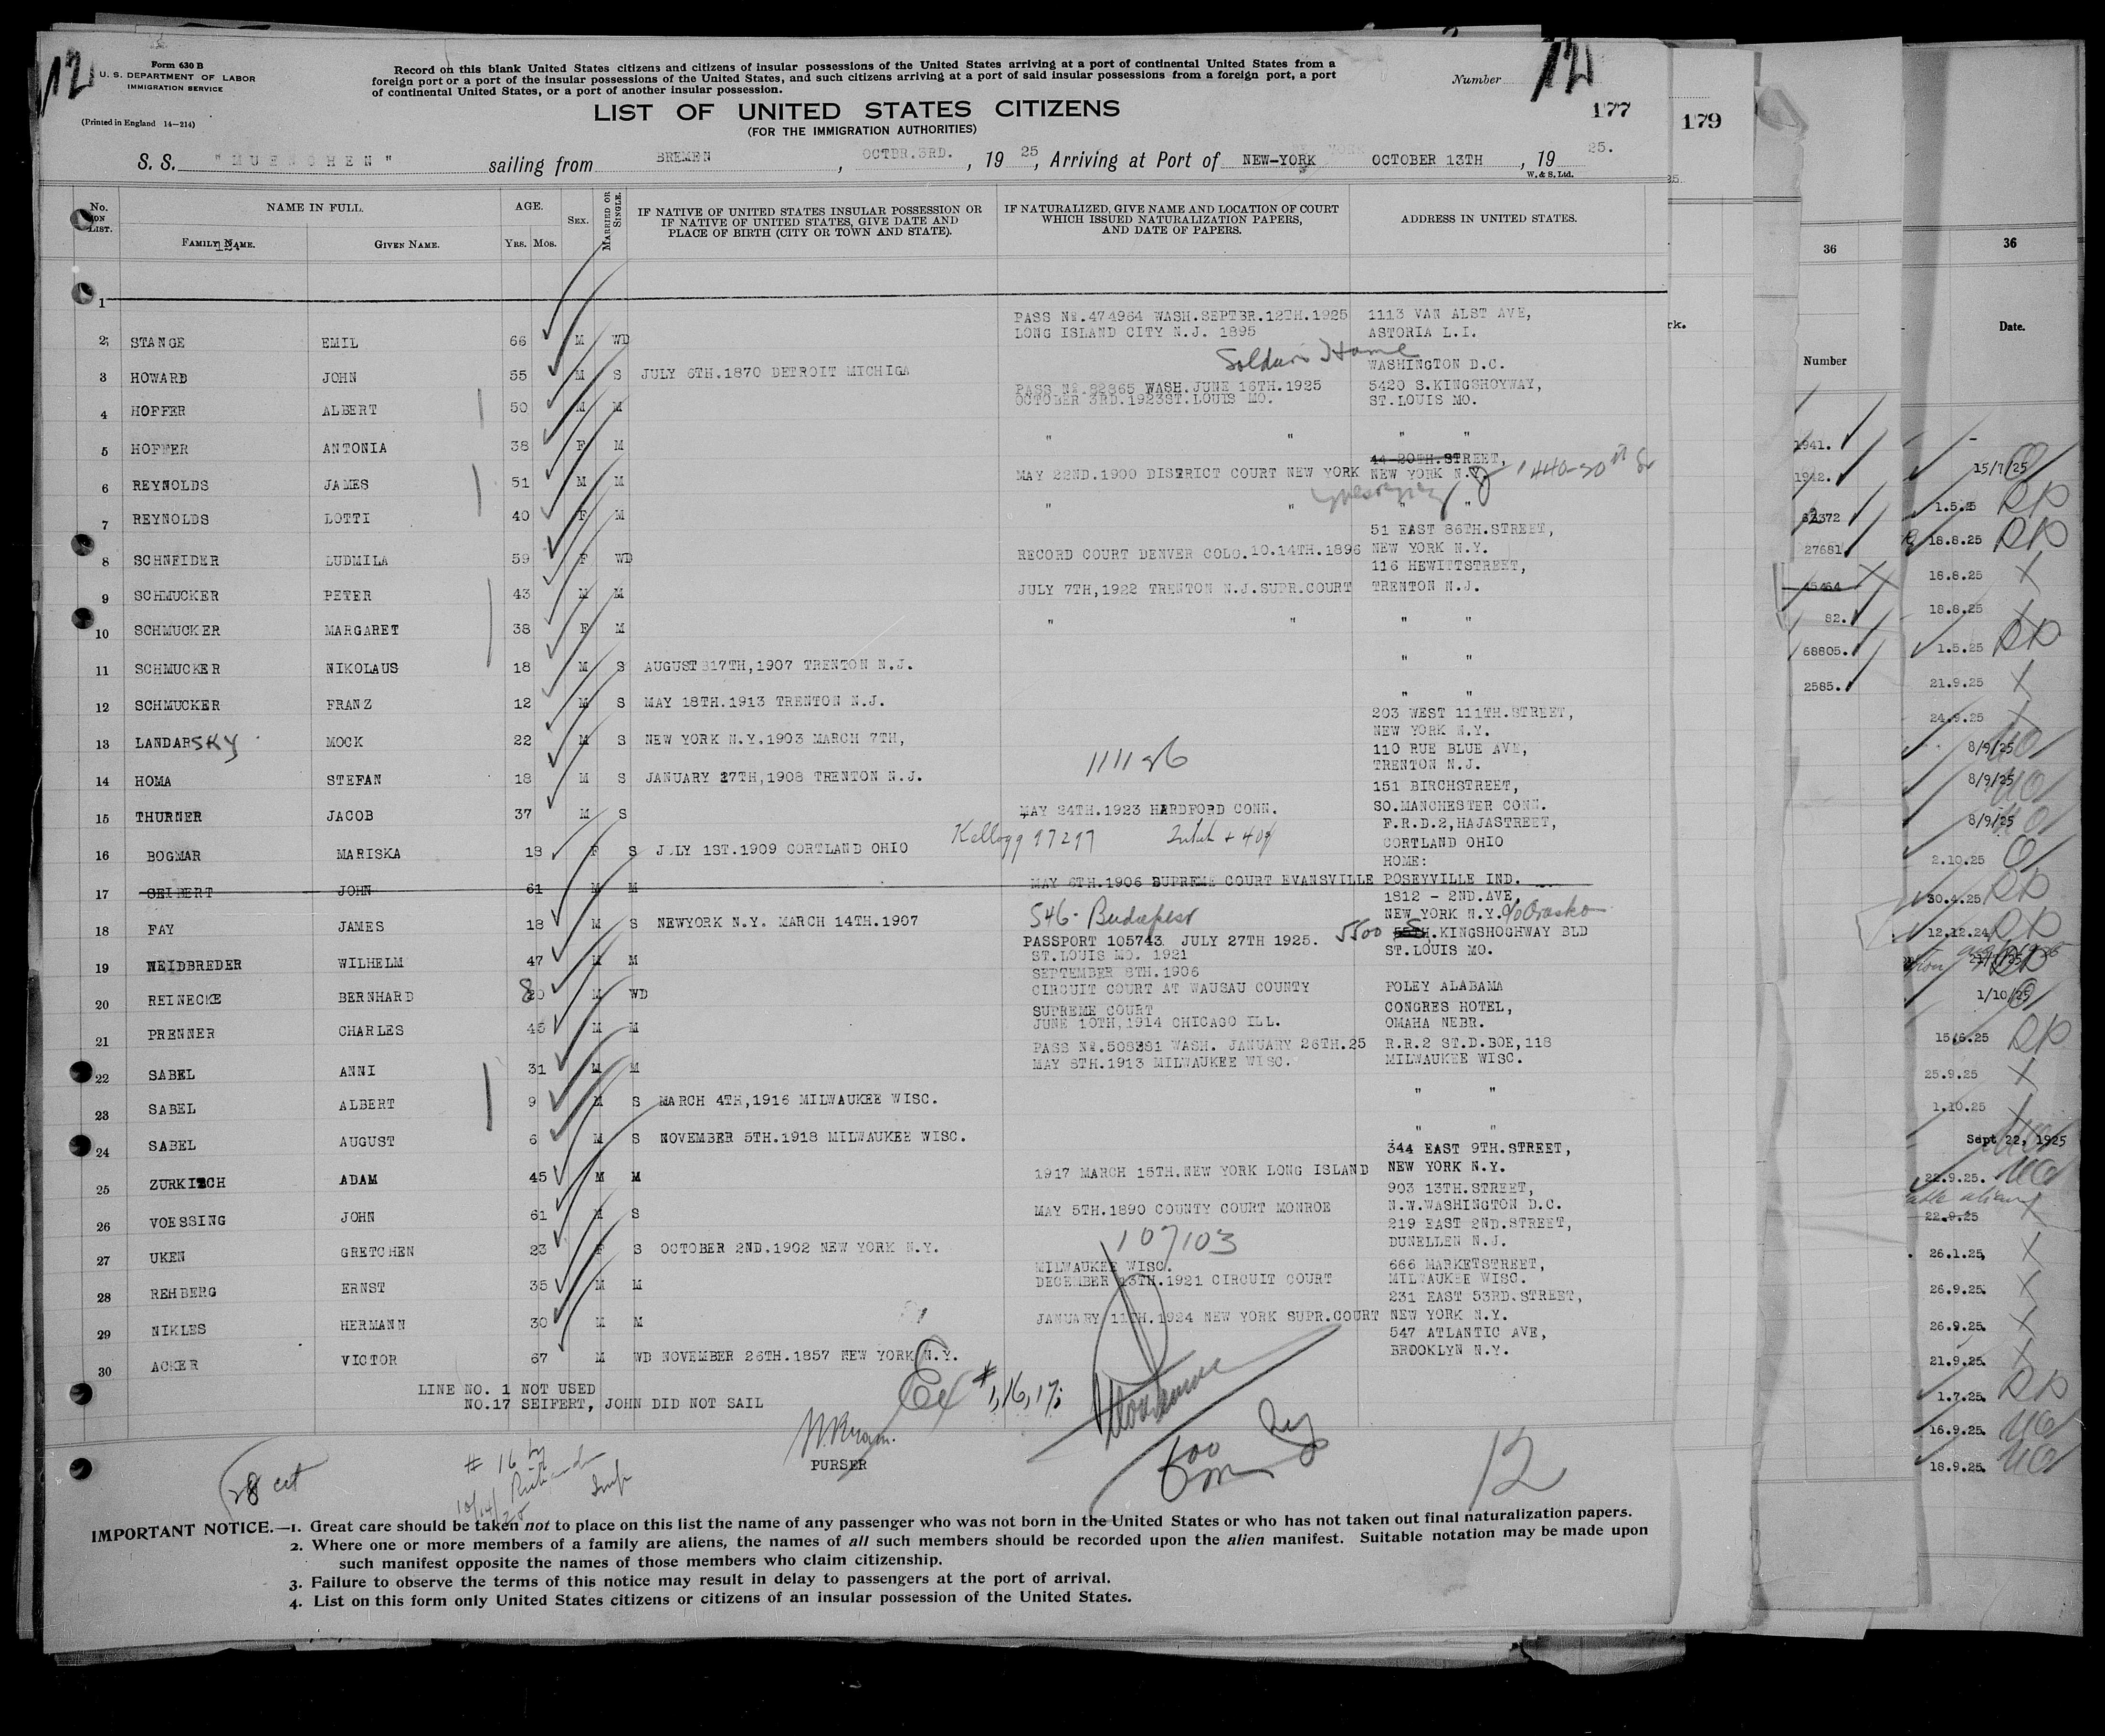 12
Form 630 B
U. S. DEPARTMENT OF LABOR
IMMIGRATION SERVICE
(Printed in England 14—214)
Record on this blank United States citizens and citizens of insular possessions of the United States arriving at a port of continental United States from a
foreign port or a port of the insular possessions of the United States, and such citizens arriving at a port of said insular possessions from a foreign port, a port
of continental United States, or a port of another insular possession.
Number 12
177
179
LIST OF UNITED STATES CITIZENS
(FOR THE IMMIGRATION AUTHORITIES)
S. S. "MUENCHEN" sailing from BREMEN, OCTBR.3RD., 1925, Arriving at Port of NEW-YORK OCTOBER 13TH, 1925.
W. & S. Ltd.
No. ON LIST.
NAME IN FULL.
FAMILY NAME.
GIVEN NAME.
AGE.
YRS. MOS.
SEX.
MARRIED OR SINGLE.
IF NATIVE OF UNITED STATES INSULAR POSSESSION OR
IF NATIVE OF UNITED STATES, GIVE DATE AND
PLACE OF BIRTH (CITY OR TOWN AND STATE).
IF NATURALIZED, GIVE NAME AND LOCATION OF COURT
WHICH ISSUED NATURALIZATION PAPERS,
AND DATE OF PAPERS.
ADDRESS IN UNITED STATES.
1
PASS No.474964 WASH.SEPTBR.12TH.1925 1113 VAN ALST AVE,
2 STANGE EMIL 66 M WD LONG ISLAND CITY N.J. 1895 ASTORIA L.I.
Soldiers Home
3 HOWARD JOHN 55 M S JULY 6TH.1870 DETROIT MICHIGA WASHINGTON D.C.
PASS No.82865 WASH.JUNE 16TH.1925 5420 S.KINGSHOYWAY,
4 HOFFER ALBERT 50 M M OCTOBER 3RD.1923ST.LOUIS MO. ST.LOUIS MO.
5 HOFFER ANTONIA 38 F M " " " "
44 20TH.STREET,
6 REYNOLDS JAMES 51 M M MAY 22ND.1900 DISERICT COURT NEW YORK NEW YORK N.Y.
7 REYNOLDS LOTTI 40 F M " " " "
51 EAST 86TH.STREET,
8 SCHNEIDER LUDMILA 59 F WD RECORD COURT DENVER COLO.10.14TH.1896 NEW YORK N.Y.
116 HEWITTSTREET,
9 SCHMUCKER PETER 43 M M JULY 7TH,1922 TRENTON N.J.SUPR.COURT TRENTON N.J.
10 SCHMUCKER MARGARET 38 F M " " " "
11 SCHMUCKER NIKOLAUS 18 M S AUGUST 17TH,1907 TRENTON N.J. " "
12 SCHMUCKER FRANZ 12 M S MAY 18TH.1913 TRENTON N.J. " "
203 WEST 111TH.STREET,
13 LANDARSKY MOCK 22 M S NEW YORK N.Y.1903 MARCH 7TH, NEW YORK N.Y.
110 RUE BLUE AVE,
14 HOMA STEFAN 18 M S JANUARY 27TH,1908 TRENTON N.J. 111186 TRENTON N.J.
151 BIRCHSTREET,
15 THURNER JACOB 37 M S MAY 24TH.1923 HARDFORD CONN. SO.MANCHESTER CONN.
F.R.D.2,HAJASTREET,
Kellogg
16 BOGMAR MARISKA 18 F S JULY 1ST.1909 CORTLAND OHIO CORTLAND OHIO
HOME:
17 SEIBERT JOHN 61 M M MAY 6TH.1906 SUPREME COURT EVANSVILLE POSEYVILLE IND.
1812 - 2ND.AVE
18 FAY JAMES 18 M S NEWYORK N.Y. MARCH 14TH.1907 546- Budapest NEW YORK N.Y.
PASSPORT 105743 JULY 27TH 1925. 5500 S.KINGSHOGHWAY BLD
19 WEIDBREDER WILHELM 47 M M ST.LOUIS MO. 1921 ST.LOUIS MO.
SEPTEMBER 8TH.1906
20 REINECKE BERNHARD M WD CIRCUIT COURT AT WAUSAU COUNTY FOLEY ALABAMA
SUPREME COURT CONGRES HOTEL,
21 PRENNER CHARLES 45 M M JUNE 10TH,1914 CHICAGO ILL. OMAHA NEBR.
PASS No.508381 WASH. JANUARY 26TH.25 R.R.2 ST.D.BOE,118
22 SABEL ANNI 31 M M MAY 8TH.1913 MILWAUKEE WISC. MILWAUKEE WISC.
23 SABEL ALBERT 9 M S MARCH 4TH,1916 MILWAUKEE WISC. " "
24 SABEL AUGUST 6 M S NOVEMBER 5TH.1918 MILWAUKEE WISC. " "
344 EAST 9TH.STREET,
25 ZURKISCH ADAM 45 M M 1917 MARCH 15TH.NEW YORK LONG ISLAND NEW YORK N.Y.
903 13TH.STREET,
26 VOESSING JOHN 61 M S MAY 5TH.1890 COUNTY COURT MONROE N.W.WASHINGTON D.C.
219 EAST 2ND.STREET,
27 UKEN GRETCHEN 23 F S OCTOBER 2ND.1902 NEW YORK N.Y. 107103 DUNELLEN N.J.
MILWAUKEE WISC. 666 MARKETSTREET,
28 REHBERG ERNST 35 M M DECEMBER 13TH.1921 CIRCUIT COURT MILWAUKEE WISC.
231 EAST 53RD.STREET,
29 NIKLES HERMANN 30 M M JANUARY 11TH.1924 NEW YORK SUPR.COURT NEW YORK N.Y.
547 ATLANTIC AVE,
30 ACKER VICTOR 67 M WD NOVEMBER 26TH.1857 NEW YORK N.Y. BROOKLYN N.Y.
LINE NO. 1 NOT USED
NO.17 SEIFERT, JOHN DID NOT SAIL
Ex # 1, 16, 17;
PURSER
28 cit
# 16 by
10/14/25
12
IMPORTANT NOTICE.—1. Great care should be taken not to place on this list the name of any passenger who was not born in the United States or who has not taken out final naturalization papers.
2. Where one or more members of a family are aliens, the names of all such members should be recorded upon the alien manifest. Suitable notation may be made upon
such manifest opposite the names of those members who claim citizenship.
3. Failure to observe the terms of this notice may result in delay to passengers at the port of arrival.
4. List on this form only United States citizens or citizens of an insular possession of the United States.
rk.
36
Number
1941.
1942.
62372
27681
45464
82.
68805.
2585.
36
Date.
15/7/25
1.5.25
18.8.25
18.8.25
18.8.25
1.5.25
21.9.25
24.9.25
8/9/25
8/9/25
8/9/25
2.10.25
30.4.25
12.12.24
1/10/25
15/6.25
25.9.25
1.10.25
Sept 22, 1925
22.9.25.
22.9.25
26.1.25
26.9.25.
26.9.25.
21.9.25.
1.7.25.
16.9.25.
18.9.25.